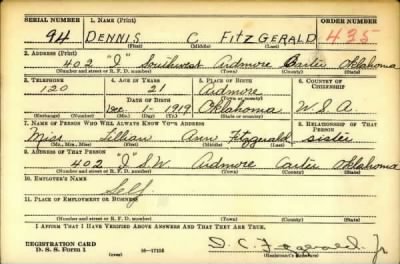 SERIAL NUMBER 1. NAME (Print) ORDER NUMBER
94 DENNIS C FITZGERALD 435
(First) (Middle) (Last)
2. ADDRESS (Print)
402 "I" Southwest Ardmore Carter Oklahoma
(Number and street or R. F. D. number) (Town) (County) (State)
3. TELEPHONE 4. AGE IN YEARS 5. PLACE OF BIRTH 6. COUNTRY OF CITIZENSHIP
120 21 Ardmore
DATE OF BIRTH (Town or county)
Dec. 1-1919 Oklahoma U.S.A.
(Exchange) (Number) (Mo.) (Day) (Yr.) (State or country)
7. NAME OF PERSON WHO WILL ALWAYS KNOW YOUR ADDRESS 8. RELATIONSHIP OF THAT PERSON
Miss Lillian Ann Fitzgerald sister
(Mr., Mrs., Miss) (First) (Middle) (Last)
9. ADDRESS OF THAT PERSON
402 "I" S.W. Ardmore Carter Oklahoma
(Number and street or R. F. D. number) (Town) (County) (State)
10. EMPLOYER'S NAME
Self
11. PLACE OF EMPLOYMENT OR BUSINESS
(Number and street or R. F. D. number) (Town) (County) (State)
I AFFIRM THAT I HAVE VERIFIED ABOVE ANSWERS AND THAT THEY ARE TRUE.
REGISTRATION CARD
D. S. S. Form 1 (over) 16-17105 D. C. Fitzgerald Jr
(Registrant's signature)